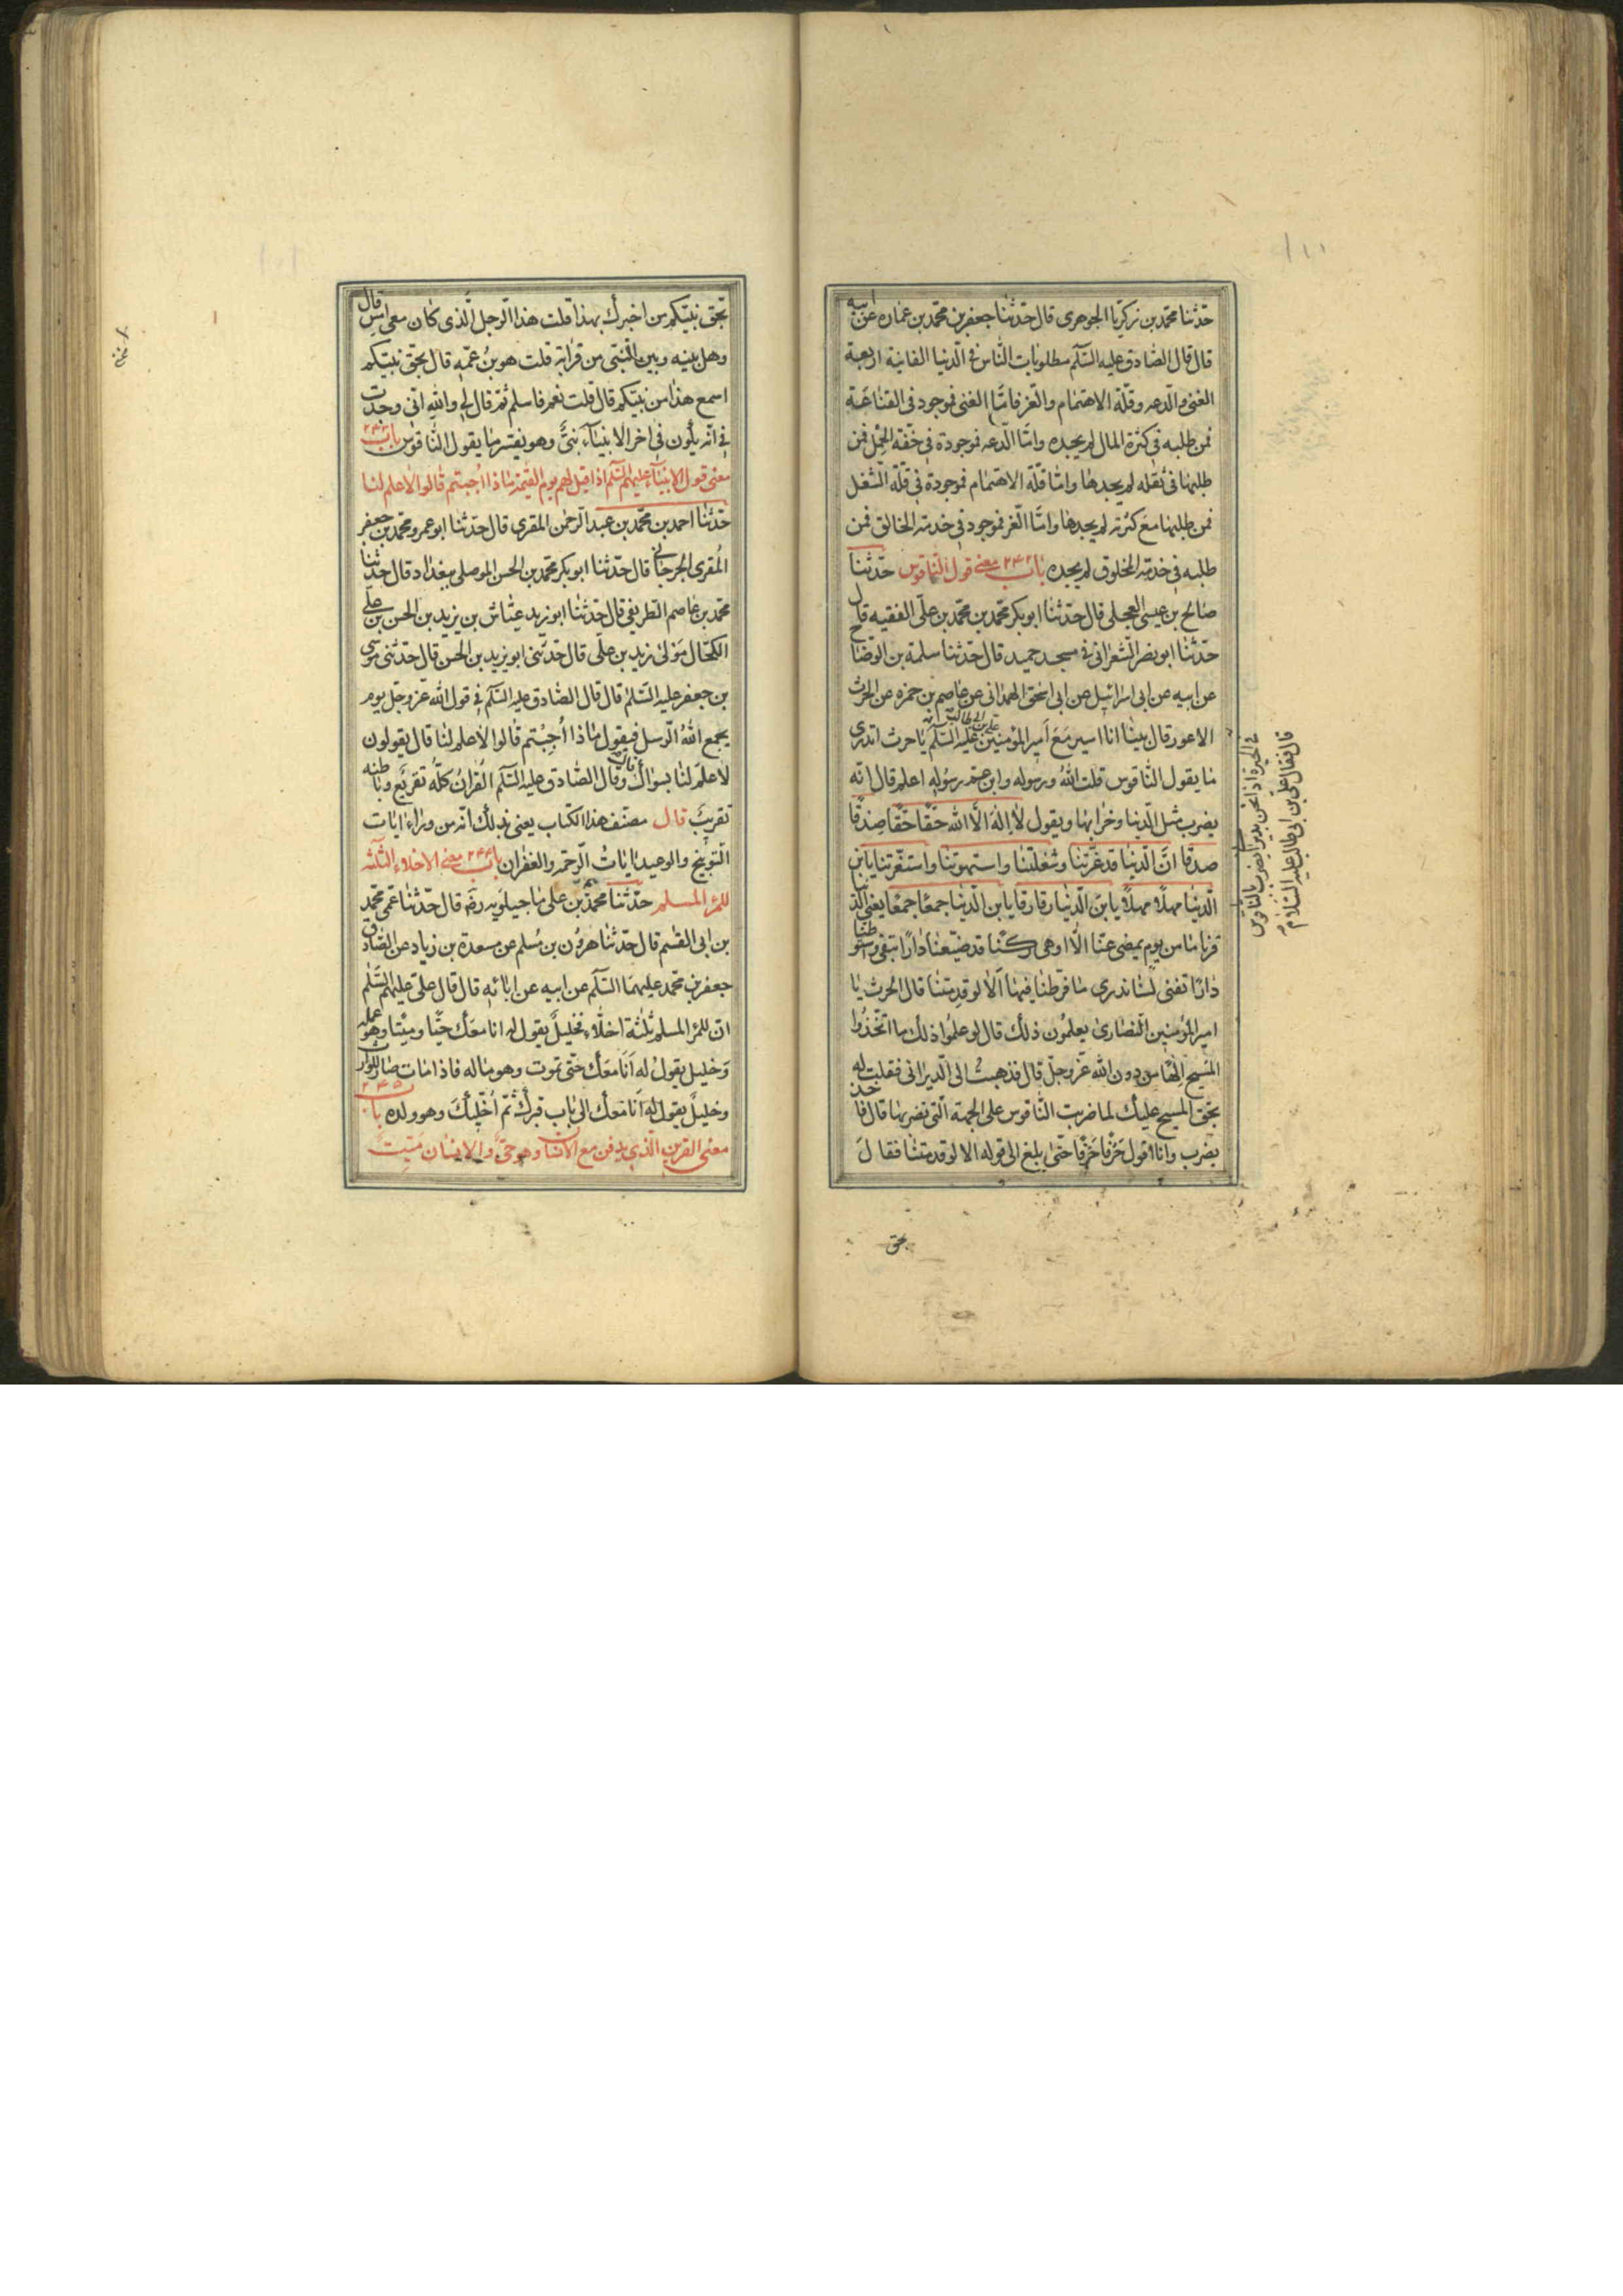 حدثنا محمد بن زكريا الجوهرى قال حدثنا جعفر بن محمد بن عماره عن ابيه
قال قال الصادق عليه السلم مطلوبات الناس فى الدنيا الفانية اربعة
الغنى والدعه وقلة الاهتمام والعز فاما الغنى فموجود فى القناعة
فمن طلبه فى كثرة المال لم يجده واما الدعه فموجودة فى خفة الحمل فمن
طلبها فى ثقله لم يجدها واما قلة الاهتمام فموجودة فى قلة الشغل
فمن طلبها مع كثرته لم يجدها واما العز فموجود فى خدمة الخالق فمن
طلبه فى خدمة المخلوق لم يجده باب ٢٤٢ معنى قول الناقوس حدثنا
صالح بن عيسى العجلى قال حدثنا ابو بكر محمد بن محمد بن على الفقيه قال
حدثنا ابو نصر الشعرانى فى مسجد حميد قال حدثنا سلمة بن الوضاح
عن ابيه عن ابى اسرائيل عن ابى اسحق الهمدانى عن عاصم بن حمزه عن الحرث
الاعور قال بينا انا اسير مع امير المؤمنين على بن ابى طالب عليه السلم يا حرث اتدرى
ما يقول الناقوس قلت الله ورسوله وابن عم رسوله اعلم قال انه
يضرب مثل الدنيا وخرابها ويقول لا اله الا الله حقا حقا صدقا
صدقا ان الدنيا قد غرتنا وشغلتنا واستهوتنا واستغوتنا يابن
الدنيا مهلا مهلا يابن الدنيا دقا دقا يابن الدنيا جمعا جمعا تفنى الدنيا
قرنا ما من يوم يمضى عنا الا اوهى ركنا قد ضيعنا دارا تبقى واستوطنا
دارا تفنى لسنا ندرى ما فرطنا فيها الا لو قدمتنا قال الحرث يا
امير المؤمنين النصارى يعلمون ذلك قال لو علموا ذلك ما اتخذوا
المسيح الها من دون الله عز وجل قال فذهبت الى الديرانى فقلت له
بحق المسيح عليك لما ضربت الناقوس على الجهة التى تضربها قال فاخذ
يضرب وانا اقول حرفا حرفا حتى بلغ الى قوله الا لو قدمتنا فقال
بحق
فى الحيرة اذا نحن بديرانى يضرب بالناقوس
قال فقال على بن ابى طالب عليه السلام
بحق نبيكم من اخبرك بهذا قلت هذا الرجل الذى كان معى امس قال
وهل بينه وبين النبى من قرابة قلت هو بن عمه قال بحق نبيكم
اسمع هذا من نبيكم قال قلت نعم فاسلم ثم قال لى والله انى وجدت
فى انه يكون فى اخر الانبياء نبى وهو يفسر ما يقول الناقوس باب ٢٤٣
معنى قول الانبياء عليهم السلم اذا قيل لهم يوم القيمة ماذا اجبتم قالوا لا علم لنا
حدثنا احمد بن محمد بن عبد الرحمن المقرى قال حدثنا ابو عمرو محمد بن جعفر
المقرى الجرجانى قال حدثنا ابو بكر محمد بن الحسن الموصلى ببغداد قال حدثنا
محمد بن عاصم الطريفى قال حدثنا ابو زيد عياش بن يزيد بن الحسن بن على
الكحال مولى زيد بن على قال حدثنى ابو يزيد بن الحسن قال حدثنى موسى
بن جعفر عليه السلم قال قال الصادق عليه السلم فى قول الله عز وجل يوم
يجمع الله الرسل فيقول ماذا اجبتم قالوا لا علم لنا قال يقولون
لا علم لنا بسواك قال وقال الصادق عليه السلم القران كله تقريع وباطنه
تقريب قال مصنف هذا الكتاب يعنى بذلك انه من وراء ايات
التوبيخ والوعيد ايات الرحمة والغفران باب ٢٤٤ معنى الاخلاء الثلثة
للمرء المسلم حدثنا محمد بن على ماجيلويه رضه قال حدثنا عمى محمد
بن ابى القسم قال حدثنا هرون بن مسلم عن مسعدة بن زياد عن الصادق
جعفر بن محمد عليهما السلم عن ابيه عن ابائه قال قال على عليهم السلم
ان للمرء المسلم ثلثة اخلاء فخليل يقول له انا معك حيا وميتا وهو عمله
وخليل يقول له انا معك حتى تموت وهو ماله فاذا مات صار للوارث
وخليل يقول له انا معك الى باب قبرك ثم اخليك وهو ولده باب ٢٤٥
معنى القرين الذى يدفن مع الانسان وهو حى والانسان ميت